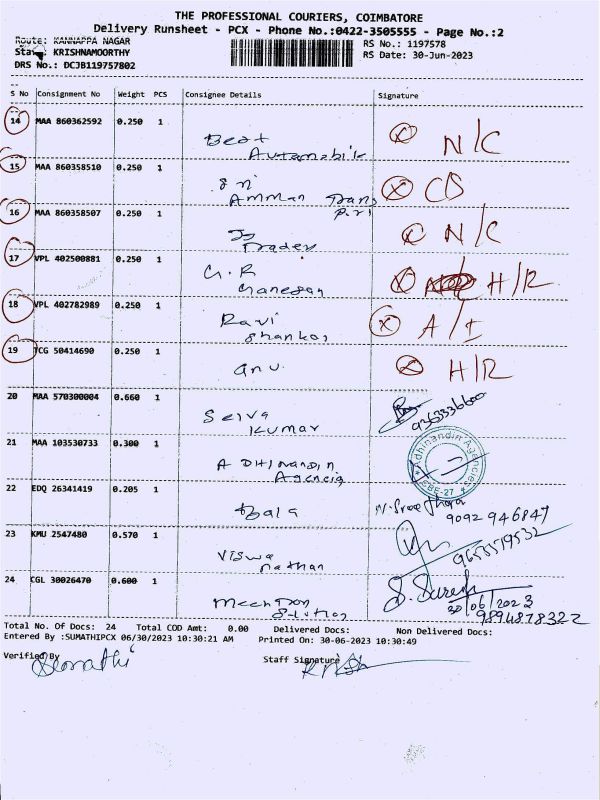 THE PROFESSIONAL COURIERS, COIMBATORE
Delivery Runsheet - PCX - Phone No.:0422-3505555 - Page No.:2
Route: KANNAPPA NAGAR
RS No.: 1197578
Staff: KRISHNAMOORTHY
RS Date: 30-Jun-2023
DRS No.: DCJB119757802
S No Consignment No Weight PCS Consignee Details Signature
14 MAA 860362592 0.250 1
Best Automobik N/C
15 MAA 860358510 0.250 1
Sri Amman Trans CD
16 MAA 860358507 0.250 1
Traders N/C
17 VPL 402500881 0.250 1
G.R Ganesan H/R
18 VPL 402782989 0.250 1
Ravi Shankar A/I
19 TCG 50414690 0.250 1
anu. H/R
20 MAA 570300004 0.660 1
Selva Kumar 9363336600
21 MAA 103530733 0.300 1
ADHinandin Agencig
Adhinandin Agencies
CBE-27
22 EDQ 26341419 0.205 1
Bala
9092 946847
23 KMU 2547480 0.570 1
Viswa nathan 9655579532
24 CGL 30026470 0.600 1
S. Suresh
30/06/2023
9894878322
Total No. Of Docs: 24 Total COD Amt: 0.00 Delivered Docs: Non Delivered Docs:
Entered By :SUMATHIPCX 06/30/2023 10:30:21 AM Printed On: 30-06-2023 10:30:49
Verified By Staff Signature